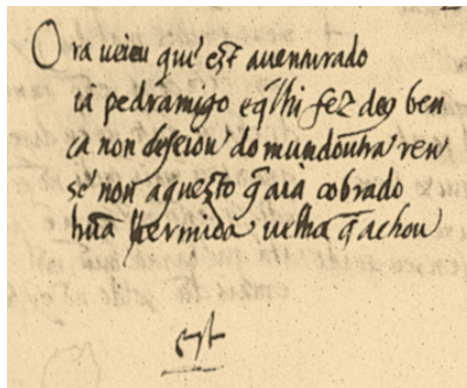 Ora veieu que est aventurado
ia pedramigo e q̃lhi fez deꝯ ben
ca non deseiou do mundoutra ren
se non aquesto q̃ aia cobrado
hũa hermida velha q̃ achou